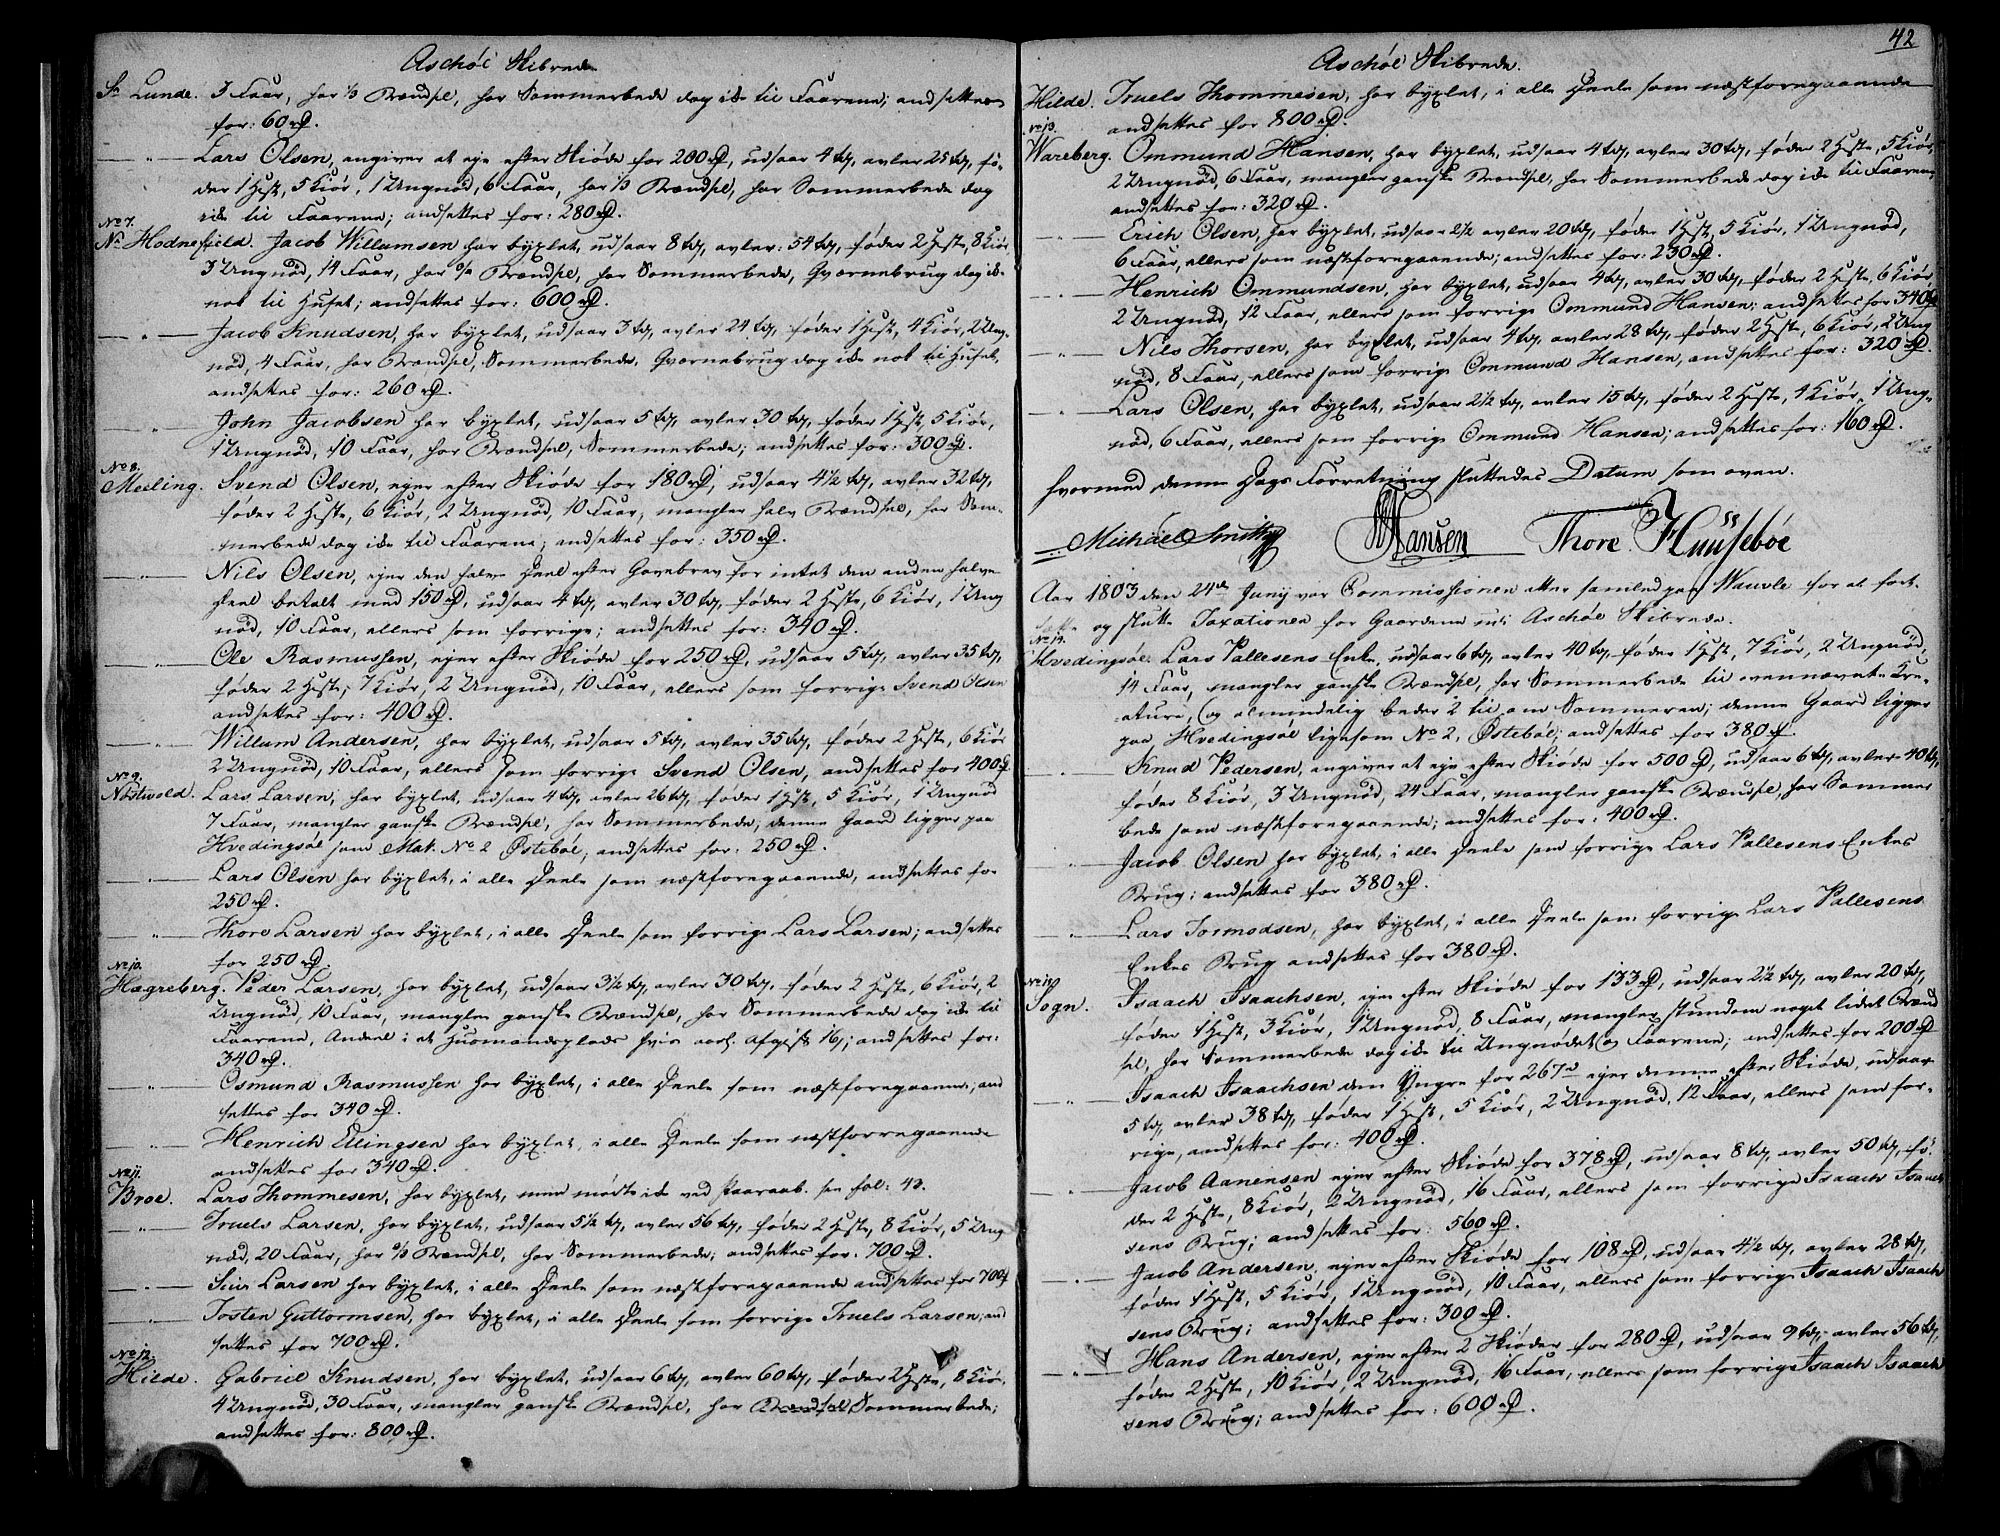 Aschøi Skibrede
Sr. Lunde. 3 Faar, har 1/3 Brændsel, har Sommerbede dog ide til Faarene; andsættes
for: 60 rd.
— " — Lars Olsen, angiver at eje efter Skiøde for 200 rd, udsaar 4 td, avler 25 td, fø-
der 1 Hest, 5 Kiør, 1 Ungnød, 6 Faar, har 1/3 Brændsel, har Sommerbede dog
ide til Faarene; andsættes for: 280 rd.
No 7.
Nr. Hodnefield. Jacob Willumsen har byxlet, udsaar 8 td, avler: 54 td, føder 2 Heste, 8 Kiør
3 Ungnød, 14 Faar, har Brændsel, har Sommerbede, Qværnebrug dog ik-
nok til Huset; andsættes for: 600 rd.
— " — Jacob Knudsen, har byxlet, udsaar 3 td, avler 24 td, føder 1 Hest, 4 Kiør, 2 Ung-
nød, 4 Faar, har Brændsel, Sommerbede, Qværnebrug dog ide nok til Huset,
andsættes for: 260 rd.
— " — John Jacobsen har byxlet, udsaar 5 td, avler 30 td, føder 1 Hest, 5 Kiør,
1 Ungnød, 10 Faar, har Brændsel, Sommerbede; andsættes for: 300 rd.
No 8.
Meeling. Svend Olsen, ejer efter Skiøde for 180 rd, udsaar 4 1/2 td, avler 32 td,
føder 2 Heste, 6 Kiør, 2 Ungnød, 10 Faar, mangler halv Brændsel, har Som-
merbede dog ide til Faarene; andsættes for: 350 rd.
— " — Nils Olsen, ejer den halve Deel efter Gavebrev for intet den anden halve
Deel betalt med 150 rd, udsaar 4 td, avler 30 td, føder 2 Heste, 6 Kiør, 1 Ung
nød, 10 Faar, ellers som forrige; andsættes for: 340 rd.
— " — Ole Rasmussen, ejer efter Skiøde for 250 rd, udsaar 5 td, avler 35 td,
føder 2 Heste, 7 Kiør, 2 Ungnød, 10 Faar, ellers som forrige Svend Olsen
andsættes for: 400 rd.
— " — Willum Andersen, har byxlet, udsaar 5 td, avler 35 td, føder 2 Heste, 6 Kiør
2 Ungnød, 10 Faar, ellers som forrige Svend Olsen, andsættes for 400 rd
No 9.
Nøstvold. Lars Larsen, har byxlet, udsaar 4 td, avler 26 td, føder 1 Hest, 5 Kiør, 1 Ungnød
7 Faar, mangler ganske Brændsel, har Sommerbede; denne Gaard ligger paa
Hvedingsøe som Mat. No 2 Østebøe; andsættes for: 250 rd.
— " — Lars Olsen har byxlet, i alle Deele som næstforegaaende, andsættes for
250 rd.
— " — Thore Larsen har byxlet, i alle Deele som forrige Lars Larsen; andsættes
for 250 rd.
No 10.
Hægreberg. Peder Larsen, har byxlet, udsaar 3 1/2 td, avler 30 td, føder 2 Heste, 6 Kiør, 2
Ungnød, 10 Faar, mangler ganske Brændsel, har Sommerbede dog ide til
Faarene, Andeel i et Huusmandsplads hvis aarl. Afgivt 16; andsættes for:
340 rd.
— " — Osmund Rasmussen har byxlet, i alle Deele som næstforegaaende, and
sættes for 340 rd.
— " — Henrich Ellingsen har byxlet, i alle Deele som næstforregaaende
andsættes for 340 rd.
No 11.
Broe. Lars Thommesen, har byxlet, men mødte ide ved paaraab. see fol: 43.
— " — Truels Larsen, har byxlet, udsaar 5 1/2 td, avler 56 td, føder 2 Heste, 8 Kiør, 5 Ung
nød, 20 Faar, har Brændsel, har Sommerbede; andsættes for: 700 rd.
— " — Siur Larsen har byxlet, i alle Deele som næstforegaaende andsættes for 700 rd
— " — Tosten Guttormsen, har byxlet, i alle Deele som forrige Truels Larsen; and
sættes for 700 rd.
No 12.
Hilde. Gabriel Knudsen, har byxlet, udsaar 6 td, avler 60 td, føder 2 Heste, 8 Kiør,
4 Ungnød, 30 Faar, mangler ganske Brændsel, har Brændsel, Sommerbede;
andsættes for: 800 rd.
42
Aschøe Skibrede.
Hilde. Truels Thommesen, har byxlet, i alle Deele som næstforegaaende
andsættes for 800 rd.
No 13.
Wareberg. Ommund Hansen, har byxlet, udsaar 4 td, avler 30 td, føder 2 Heste, 5 Kiør,
2 Ungnød, 6 Faar, mangler ganske Brændsel, har Sommerbede dog ide til Faarene,
andsættes for: 320 rd.
— " — Erich Olsen, har byxlet, udsaar 2 1/2 avler 20 td, føder 1 Hest, 5 Kiør, 1 Ungnød,
6 Faar, ellers som næstforegaaende; andsættes for: 230 rd.
— " — Henrich Ommundsen, har byxlet, udsaar 4 td, avler 30 td, føder 2 Heste, 6 Kiør,
2 Ungnød, 12 Faar, ellers som forrige Ommund Hansen; andsættes for 340 rd
— " — Nils Thorsen, har byxlet, udsaar 4 td, avler 28 td, føder 2 Heste, 6 Kiør, 2 Ung
nød, 8 Faar, ellers som forrige Ommund Hansen, andsættes for: 320 rd.
— " — Lars Olsen, har byxlet, udsaar 2 1/2 td, avler 15 td, føder 2 Heste, 4 Kiør, 1 Ung-
nød, 6 Faar, ellers som forrige Ommund Hansen; andsættes for: 160 rd.
hvormed denne Dags Forretning sluttedes Datum som oven.
Michael Smith HHansen Thore Huusebøe
Aar 1803 den 24de Junij var Commissionen atter samled paa Wauvle for at fort-
sætte og slutte Taxationen for Gaardene udi Aschøe Skibrede.
No 14.
Hvedingsøe. Lars Pallesens Enke, udsaar 6 td, avler 40 td, føder 1 Hest, 7 Kiør, 2 Ungnød,
14 Faar, mangler ganske Brændsel, har Sommerbede til ovennævnte Kre-
ature, og almindelig beder 2 til om Sommeren; denne Gaard ligger
paa Hvedingsøe ligesom No 2, Østebøe; andsættes for 380 rd.
— " — Knud Pedersen, angiver at eje efter Skiøde for 500 rd, udsaar 6 td, avler 40 td,
føder 8 Kiør, 3 Ungnød, 24 Faar, mangler ganske Brændsel, har Sommer
bede som næstforegaaende; andsættes for: 400 rd.
— " — Jacob Olsen har byxlet, i alle Deele som forrige Lars Pallesens Enkes
Brug; andsættes for 380 rd.
— " — Lars Tormodsen, har byxlet, i alle Deele som forrige Lars Pallesens
Enkes Brug andsættes for 380 rd.
Sogn. Isaach Isaachsen, ejer efter Skiøde for 133 rd, udsaar 2 1/2 td, avler 20 td,
føder 1 Hest, 3 Kiør, 1 Ungnød, 8 Faar, mangler stundom noget lidet Brænd
sel, har Sommerbede dog ide til Ungnødet og Faarene; andsættes for 200 rd
— " — Isaach Isaachsen den Yngre for 267 rd ejer denne efter Skiøde, udsaar
5 td, avler 38 td, føder 1 Hest, 5 Kiør, 2 Ungnød, 12 Faar, ellers som for-
rige, andsættes for: 400 rd.
— " — Jacob Aanensen ejer efter Skiøde for 378 rd, udsaar 8 td, avler 50 td, fø-
der 2 Heste, 8 Kiør, 2 Ungnød, 16 Faar, ellers som forrige Isaach Isaach
sens Brug; andsættes for: 560 rd.
— " — Jacob Andersen, ejer efter Skiøde for 108 rd, udsaar 4 1/2 td, avler 28 td,
føder 1 Hest, 5 Kiør, 1 Ungnød, 10 Faar, ellers som forrige Isaach Isaach
sens Brug; andsættes for: 300 rd.
— " — Hans Andersen, ejer efter 2 Skiøder for 280 rd, udsaar 9 td, avler 56 td,
føder 2 Heste, 10 Kiør, 2 Ungnød, 16 Faar, ellers som forrige Isaach Isaach
sens Brug; andsættes for: 600 rd.